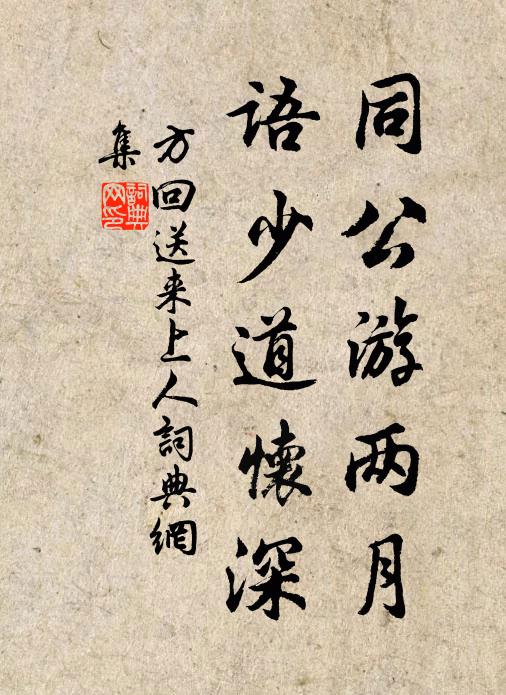 同公游两月
语少道懷深
方回送来上人詞典網
集
詞典网印